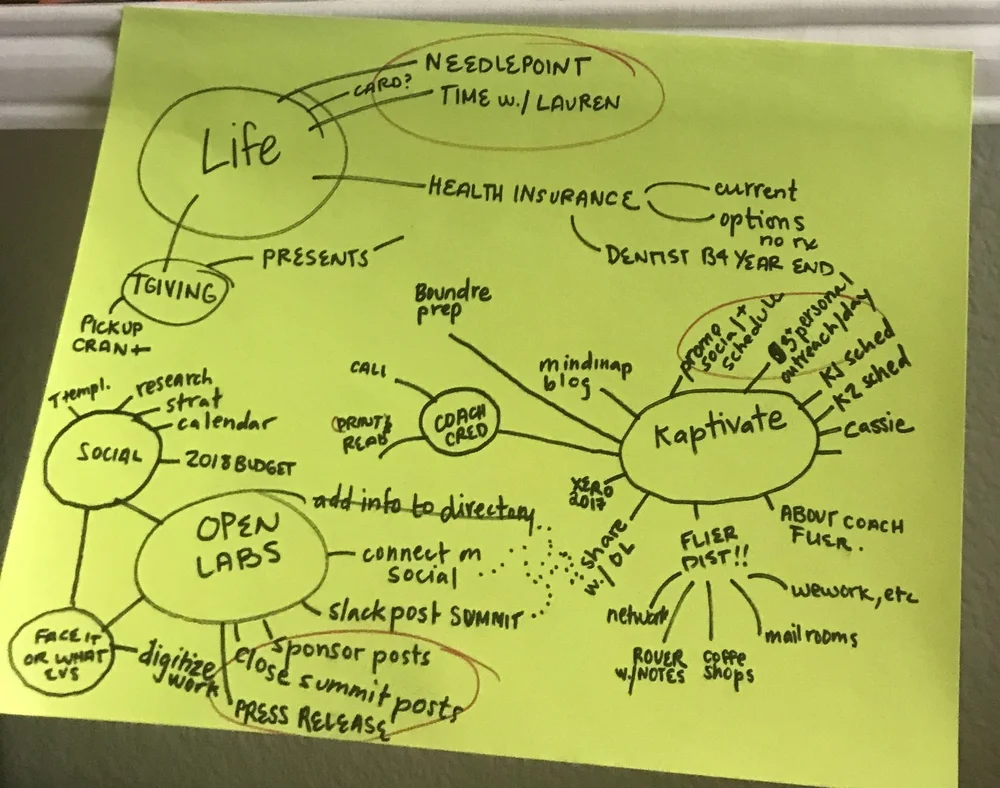 NEEDLEPOINT
CARD?
TIME w./ LAUREN
Life
HEALTH INSURANCE
current
options
no rx
DENTIST B4 YEAR END
PRESENTS
TGIVING
PICKUP
CRAN+
Boundre
prep
promo
social +
schedule
5 personal
outreach/day
K1 sched
K2 sched
Cassie
mindmap
blog
Kaptivate
CALL
COACH
CRED
PRINT &
READ
T+empl.
research
strat
calendar
SOCIAL
2018 BUDGET
XERO
2017
share
w./ OL
ABOUT COACH
FLIER.
FLIER
DIST!!
network
ROVER
w./NOTES
coffe
shops
mail rooms
wework, etc
OPEN
LABS
add info to directory
connect on
social
slack post SUMMIT
FACE IT
OR WHAT
EVS
digitize
work
sponsor posts
close summit posts
PRESS RELEASE